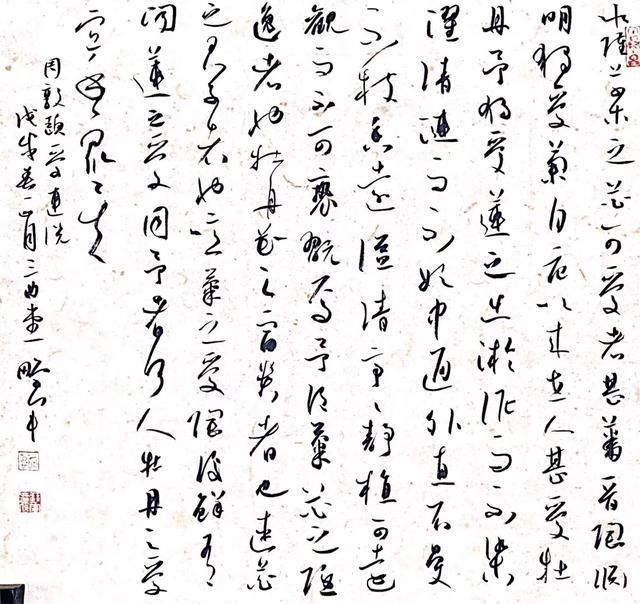 水陸草木之花可愛者甚蕃晉陶淵
明獨愛菊自唐以來世人甚愛牡
丹予獨愛蓮之出淤泥而不染
濯清漣而不妖中通外直不蔓
不枝香遠溢清亭々靜植可遠
觀而不可褻翫焉予謂菊花之隱
逸者也牡丹花之富貴者也蓮花
之君子者也噫菊之愛陶後鮮有
聞蓮之愛同予者何人牡丹之愛
宜乎眾矣
周敦頤愛蓮說
戊戌春